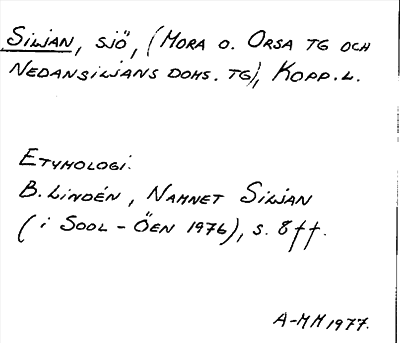 Siljan, sjö, (Mora o. Orsa tg och
Nedansiljans doms. tg), Kopp.l.
Etymologi:
B. Lindén, Namnet Siljan
(i Sool-Öen 1976), s. 8ff.
A-MH 1977.